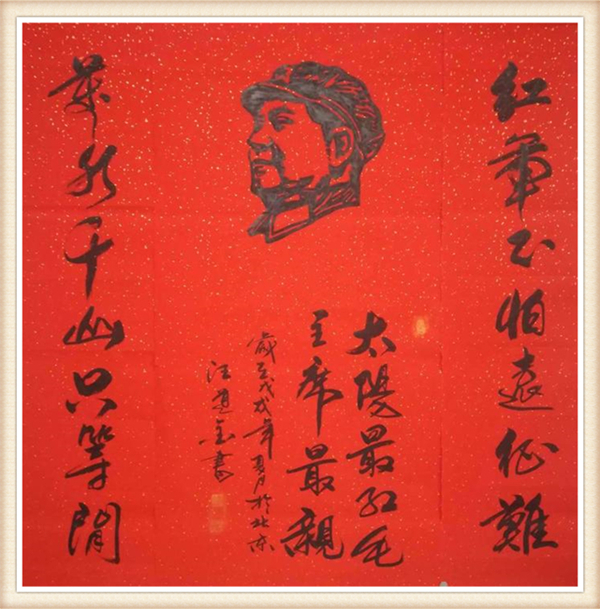 紅軍不怕遠征難
太陽最紅毛
主席最親
歲在戊戌年夏月於北京
汪道金書
萬水千山只等閒